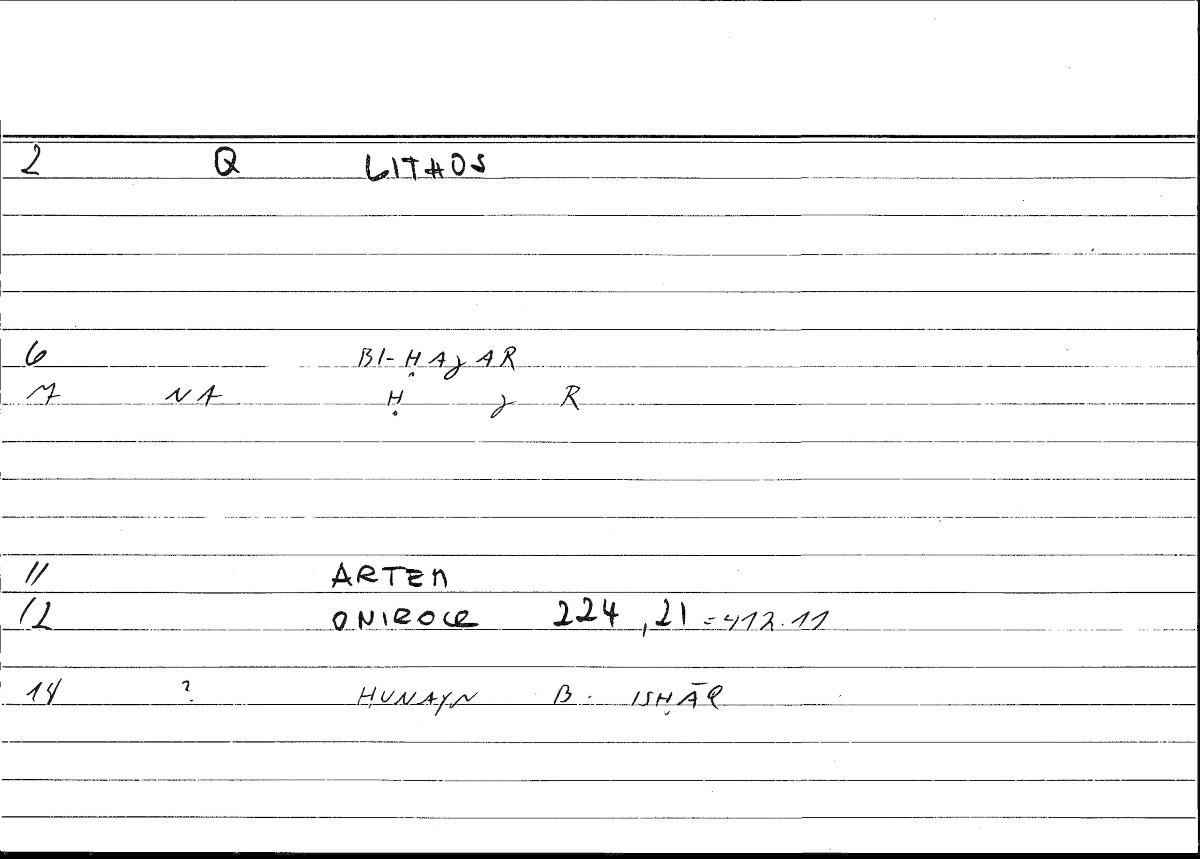 2 Q LITHOS
6 BI-ḤAJAR
7 NA Ḥ J R
11 ARTEM
12 ONIROCR 224,21 = 412.11
14 ? HUNAYN B. ISḤĀQ